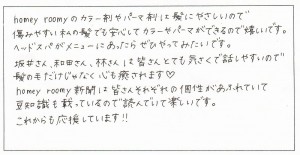 homey roomyのカラー剤やパーマ剤は髪にやさしいので
傷みやすい私の髪でも安心してカラーやパーマができるので嬉しいです。
ヘッドスパがメニューにあったらぜひやってみたいです。
坂井さん、和田さん、林さんは皆さんとても気さくで話しやすいので
髪の毛だけじゃなく心も癒されます♡
homey roomy新聞は皆さんそれぞれの個性があふれていて
豆知識も載っているので読んでいて楽しいです。
これからも応援しています!!